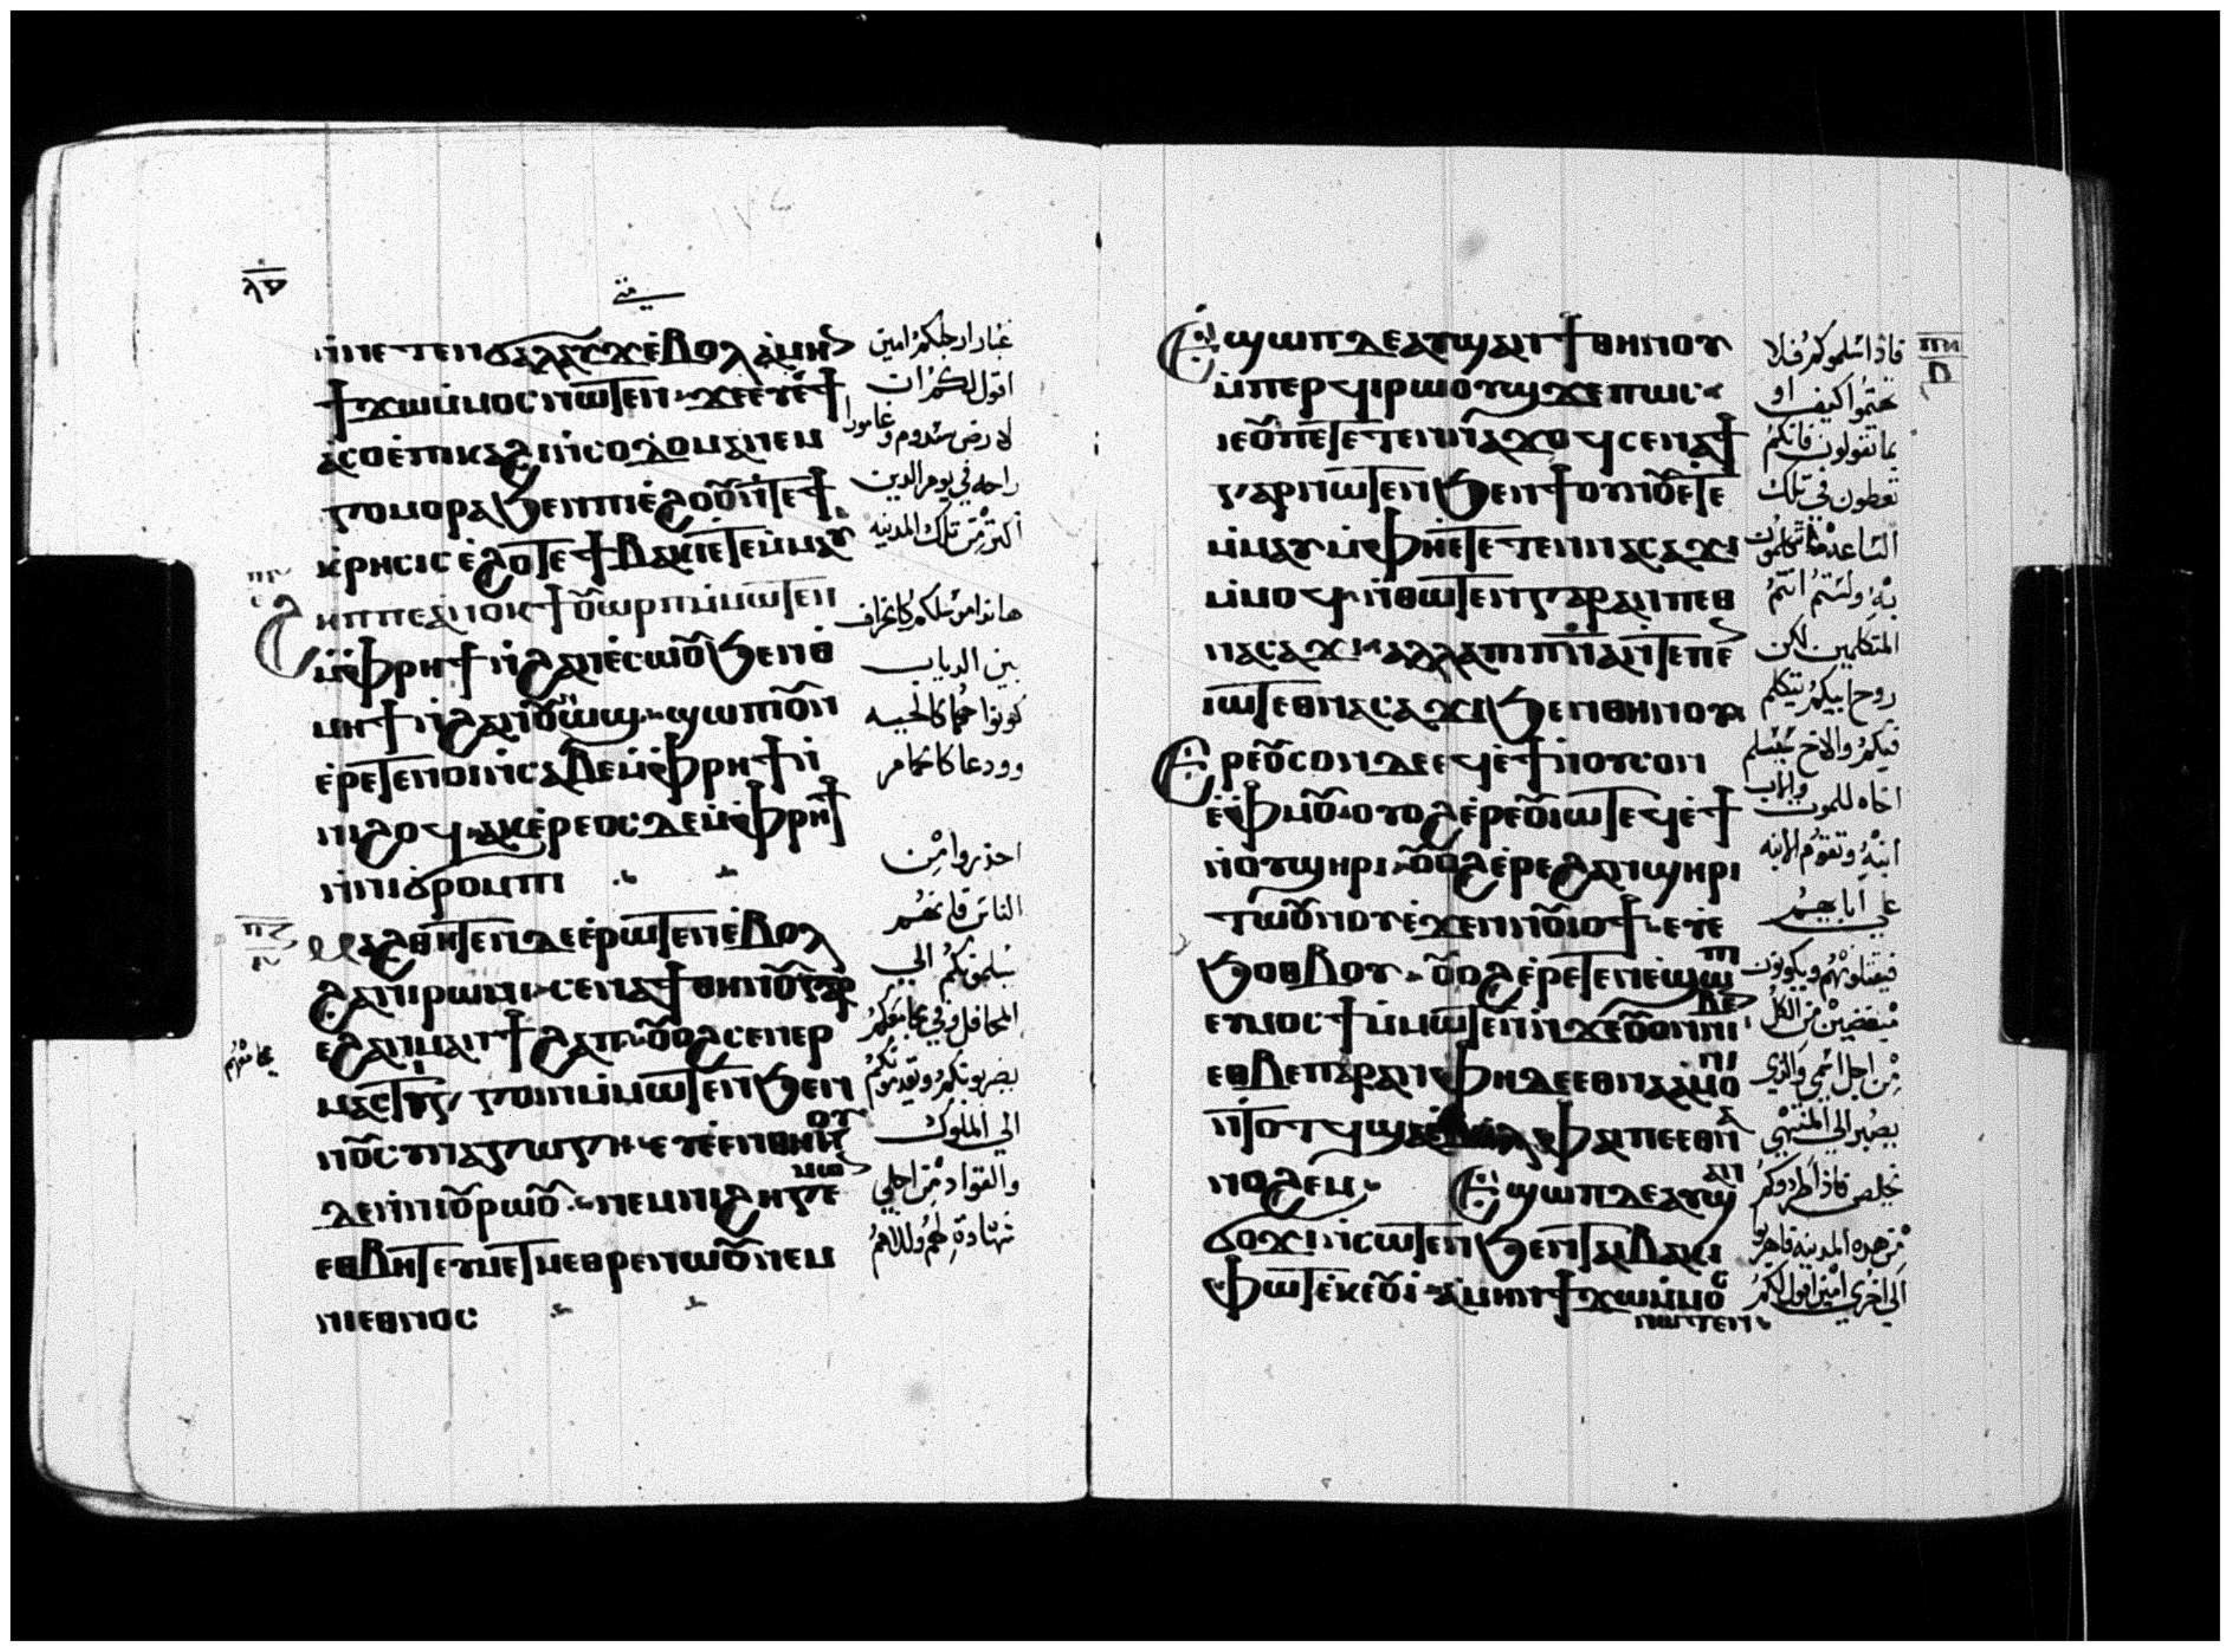 ⲛ̀ⲛⲉⲧⲉⲛϭⲁⲗⲁⲩϫ ⲉ̀ⲃⲟⲗ ⲁ̀ⲙⲏⲛ
ϯϫⲱ ⲙ̀ⲙⲟⲥ ⲛⲱⲧⲉⲛ ϫⲉ ⲉⲩⲉ̀ϯ
ⲁ̀ⲥⲟ ⲉ̀ⲡⲕⲁϩⲓ ⲛ̀ⲥⲟⲇⲟⲙⲁ ⲛⲉⲙ
ⲅⲟⲙⲟⲣⲣⲁ ϧⲉⲛ ⲡⲓⲉ̀ϩⲟⲟⲩ ⲛ̀ⲧⲉ ϯ
ⲕⲣⲏⲥⲓⲥ ⲉ̀ϩⲟⲧⲉ ϯⲃⲁⲕⲓ ⲉⲧⲉⲙ̀ⲙⲁⲩ
ϩⲏⲡⲡⲉ ⲁ̀ⲛⲟⲕ ϯⲟⲩⲱⲣⲡ ⲙ̀ⲙⲱⲧⲉⲛ
ⲙ̀ⲫⲣⲏϯ ⲛ̀ϩⲁⲛⲉ̀ⲥⲱⲟⲩ ϧⲉⲛ ⲑ
ⲙⲏϯ ⲛ̀ϩⲁⲛⲟⲩⲱⲛϣ ϣⲱⲡⲓ ⲟⲩⲛ
ⲉ̀ⲣⲉⲧⲉⲛⲟⲓ ⲛ̀ⲥⲁⲃⲉ ⲙ̀ⲫⲣⲏϯ ⲛ̀
ⲛⲓϩⲟϥ ⲁⲕⲉⲣⲉⲟⲥ ⲇⲉ ⲙ̀ⲫⲣⲏϯ
ⲛ̀ⲛⲓϭⲣⲟⲙⲡⲓ
ⲙⲁϩⲑⲏⲧⲉⲛ ⲇⲉ ⲉ̀ⲣⲱⲧⲉⲛ ⲉ̀ⲃⲟⲗ
ϩⲁ ⲛⲓⲣⲱⲙⲓ ⲥⲉⲛⲁϯ ⲑⲏⲛⲟⲩ ⲅⲁⲣ
ⲉ̀ϩⲁⲛⲙⲁⲛϯϩⲁⲡ ⲟⲩⲟϩ ⲥⲉⲛⲉⲣ
ⲙⲁⲥⲧⲓⲅⲅⲟⲓⲛ ⲙ̀ⲙⲱⲧⲉⲛ ϧⲉⲛ
ⲛⲟⲩⲥⲩⲛⲁⲅⲱⲅⲏ ⲉⲩⲉ̀ⲉⲛ ⲑⲏⲛⲟⲩ
ⲇⲉ ⲛ̀ⲛⲓⲟⲩⲣⲱⲟⲩ ⲛⲉⲙ ⲛⲓϩⲏⲅⲉⲙⲱⲛ
ⲉⲑⲃⲏⲧ ⲉⲩⲙⲉⲧⲙⲉⲑⲣⲉ ⲛⲱⲟⲩ ⲛⲉⲙ
ⲛⲓⲉⲑⲛⲟⲥ
غبار ارجلكم امين
اقول لكم ان
لارض سدوم وغامورا
راحه في يوم الدين
اكثر من تلك المدينه
هانذا مرسلكم كالخراف
بين الدياب
كونوا حكما كالحيه
وودعا كالحمام
احذروا من
الناس فانهم
يسلمونكم الى
المحافل وفي مجامعكم
يضربونكم ويقدمونكم
الى الملوك
والقواد من اجلي
شهادة لهم وللامم
Ⲉϣⲱⲡ ⲇⲉ ⲁⲩϣⲁⲛϯ ⲑⲏⲛⲟⲩ
ⲙ̀ⲡⲉⲣϥⲓⲣⲱⲟⲩϣ ϫⲉ ⲡⲱⲥ
ⲓⲉ ⲟⲩ ⲡⲉⲧⲉⲧⲉⲛⲛⲁϫⲟϥ ⲥⲉⲛⲁϯ
ⲅⲁⲣ ⲛⲱⲧⲉⲛ ϧⲉⲛ ϯⲟⲩⲛⲟⲩ ⲉⲧⲉ
ⲙ̀ⲙⲁⲩ ⲙ̀ⲫⲏ ⲉⲧⲉⲧⲉⲛⲛⲁⲥⲁϫⲓ
ⲙ̀ⲙⲟϥ ⲛ̀ⲑⲱⲧⲉⲛ ⲅⲁⲣ ⲁⲛ ⲡⲉⲑ
ⲛⲁⲥⲁϫⲓ ⲁⲗⲗⲁ ⲡⲓⲡⲛⲁ ⲛ̀ⲧⲉ ⲡⲉⲧⲉⲛ
ⲓⲱⲧ ⲉⲑⲛⲁⲥⲁϫⲓ ϧⲉⲛ ⲑⲏⲛⲟⲩ
Ⲉⲣⲉ ⲟⲩⲥⲟⲛ ⲇⲉ ⲉϥⲉ̀ϯ ⲛ̀ⲟⲩⲥⲟⲛ
ⲉ̀ⲫⲙⲟⲩ ⲟⲩⲟϩ ⲉ̀ⲣⲉ ⲟⲩⲓⲱⲧ ⲉϥⲉ̀ϯ
ⲛ̀ⲟⲩϣⲏⲣⲓ ⲟⲩⲟϩ ⲉ̀ⲣⲉ ϩⲁⲛϣⲏⲣⲓ
ⲧⲱⲟⲩⲛⲟⲩ ⲉ̀ϫⲉⲛ ⲛⲟⲩⲓⲟϯ ⲉⲩⲉ
ϧⲟⲑⲃⲟⲩ ⲟⲩⲟϩ ⲉ̀ⲣⲉⲧⲉⲛⲉ̀ϣⲱⲡⲓ
ⲉⲩⲙⲟⲥϯ ⲙ̀ⲙⲱⲧⲉⲛ ⲛ̀ϫⲉ ⲟⲩⲟⲛ ⲛⲓⲃⲉⲛ
ⲉⲑⲃⲉ ⲡⲁⲣⲁⲛ ⲫⲏ ⲇⲉ ⲉⲑⲛⲁⲁⲙⲟⲛⲓ
ⲛ̀ⲧⲟⲧϥ ϣⲁ ⲉ̀ⲃⲟⲗ ⲫⲁⲓ ⲡⲉ ⲉⲑⲛⲁ
ⲛⲟϩⲉⲙ Ⲉϣⲱⲡ ⲇⲉ ⲁⲩϣⲁⲛ
ϭⲟϫⲓ ⲛ̀ⲥⲱⲧⲉⲛ ϧⲉⲛ ⲧⲁⲓⲃⲁⲕⲓ
ⲫⲱⲧ ⲉ̀ⲕⲉⲟⲩⲓ ⲁ̀ⲙⲏⲛ ϯϫⲱ ⲙ̀ⲙⲟⲥ
ⲛⲱⲧⲉⲛ
فاذا اسلموكم فلا
تهتموا كيف او
بما تقولون فانكم
تعطون في تلك
الساعة ما تتكلمون
به ولستم انتم
المتكلمين لكن
روح ابيكم يتكلم
فيكم والاخ يسلم
اخاه للموت والاب
ابنه وتقوم الابنه
على ابايهم
فيقتلونهم ويكونون
مبغضين من الكل
من اجل اسمي والذي
يصبر الى المنتهى
يخلص فاذا طردوكم
من هذه المدينه فاهربوا
الى اخرى امين اقول لكم